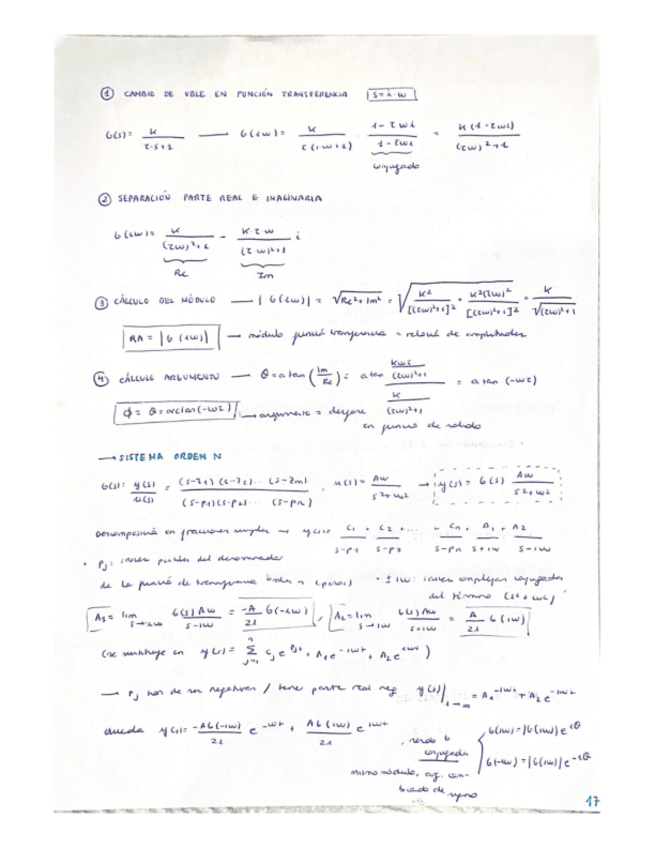 ① CAMBIO DE VBLE EN FUNCIÓN TRANSFERENCIA s = i·w
G(s) = K / τ·s+1 —— G(iw) = K / τ(i·w+1) · 1-τwi / 1-τwi = K(1-τwi) / (τw)²+1
conjugado
② SEPARACIÓN PARTE REAL E IMAGINARIA
G(iw) = K / (τw)²+1 - K·τ·w / (τw)²+1 i
Re Im
③ CÁLCULO DEL MÓDULO —— |G(iw)| = √Re²+Im² = √ K² / [(τw)²+1]² + K²(τw)² / [(τw)²+1]² = K / √(τw)²+1
RA = |G(iw)| → módulo función transferencia = relación de amplitudes
④ CÁLCULO ARGUMENTO —— θ = atan (Im / Re) = atan Kwi / (τw)²+1 / K / (τw)²+1 = atan (-wτ)
φ = θ = arctan(-wτ) → argumento = desfase
en función de
→ SISTEMA ORDEN N
G(s) = y(s) / u(s) = (s-z1)(s-z2)...(s-zm) / (s-p1)(s-p2)...(s-pn) , u(s) = Aw / s²+w² → y(s) = G(s) Aw / s²+w²
en fracciones simples → y(s) = C1 / s-p1 + C2 / s-p2 + ... + Cn / s-pn + A1 / s+iw + A2 / s-iw
• pj: del denominador
de la función de transferencia orden n (polos) • ± iw: complejas conjugadas
del término (s²+w²)
A1 = lim s→-iw G(s)Aw / s-iw = -A / 2i G(-iw) , A2 = lim s→iw G(s)Aw / s+iw = A / 2i G(iw)
(se sustituye en y(t) = Σ cj e^pjt + A1e^-iwt + A2e^iwt)
→ pj han de ser negativos / tener parte real neg y(s)| t→∞ = A1^-iwt + A2e^-iwt
queda y(t) = -AG(-iw) / 2i e^-iwt + AG(iw) / 2i e^iwt
, siendo G conjugada G(iw) = |G(iw)|e^iθ
G(-iw) = |G(iw)|e^-iθ
mismo módulo, arg. cam-
biado de signo
17